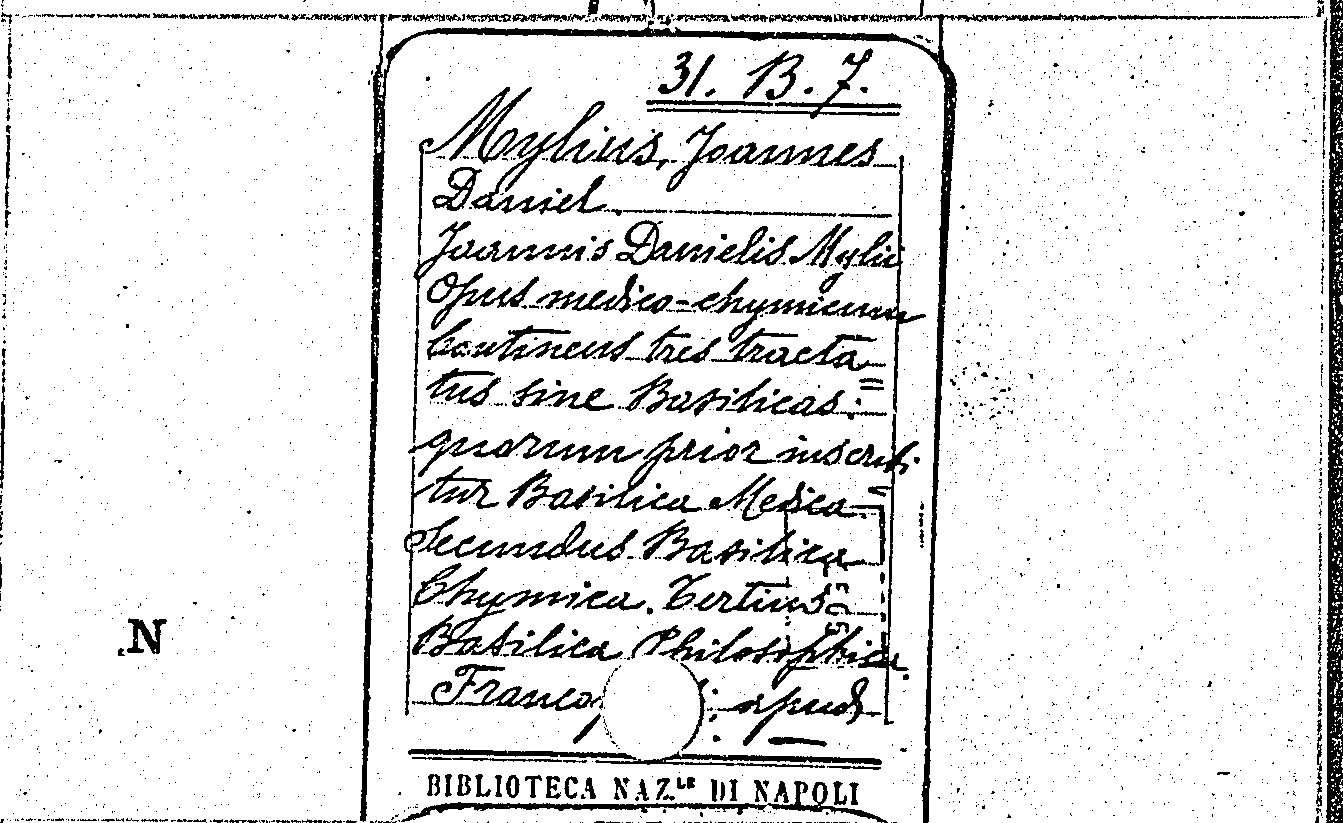 31. B. 7.
Mylius, Joannes
Daniel.
Joannis Danielis Mylii
Opus medico-chymicum
Continens tres tracta=
tus sive Basilicas:
quorum prior inscribi
tur Basilica Medica.
Secundus Basilica
Chymica. Tertius
Basilica Philosophica.
apud
N
BIBLIOTECA NAZ.LE DI NAPOLI